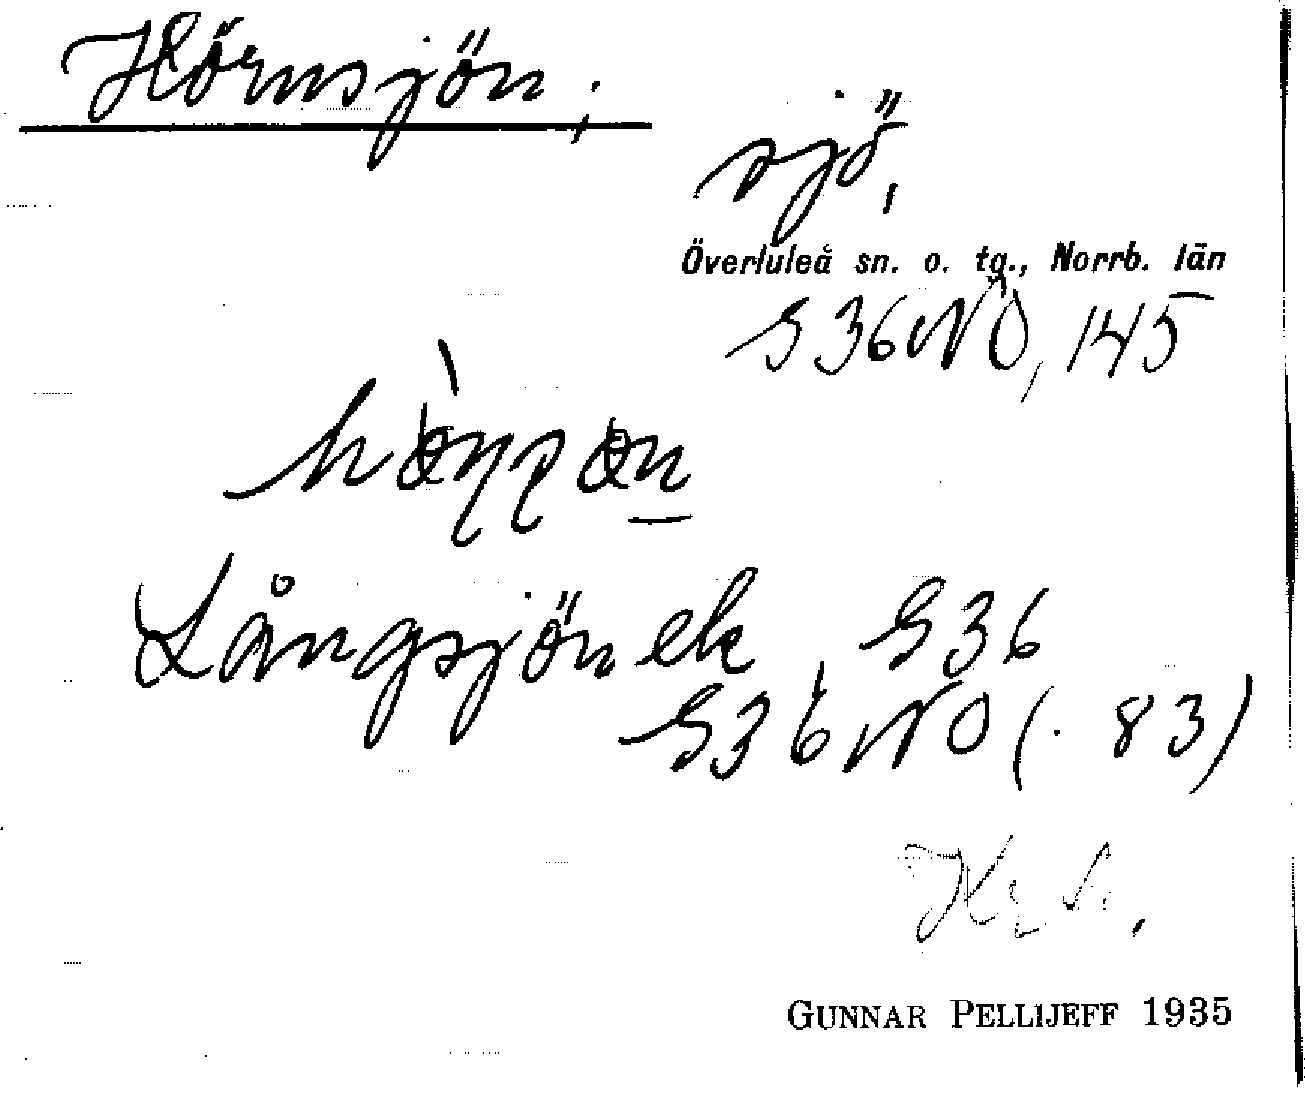 Hörnsjön,
sjö,
Överluleå sn. o. tg., Norrb. län
S36NO, 145
Långsjön ek, S36
S36NO (. 83)
GUNNAR PELLIJEFF 1935